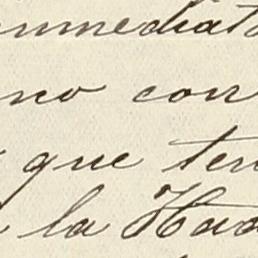 inmediat
no con
que ten
la Ha